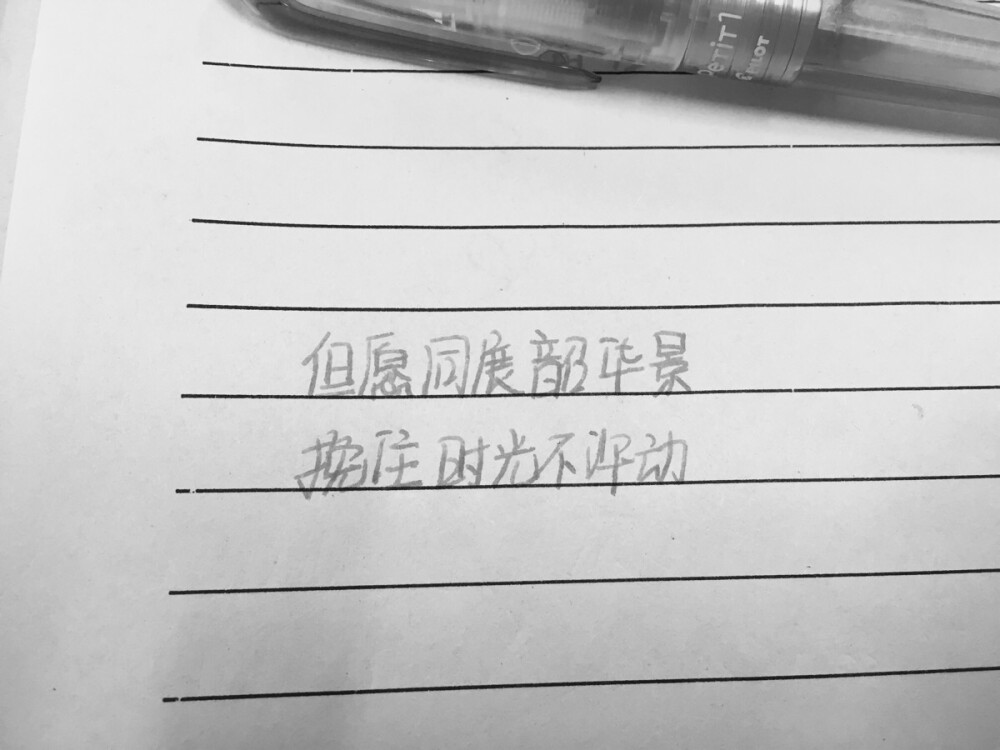 Petit1
PILOT
但愿同展韶华景
挽住时光不浑动